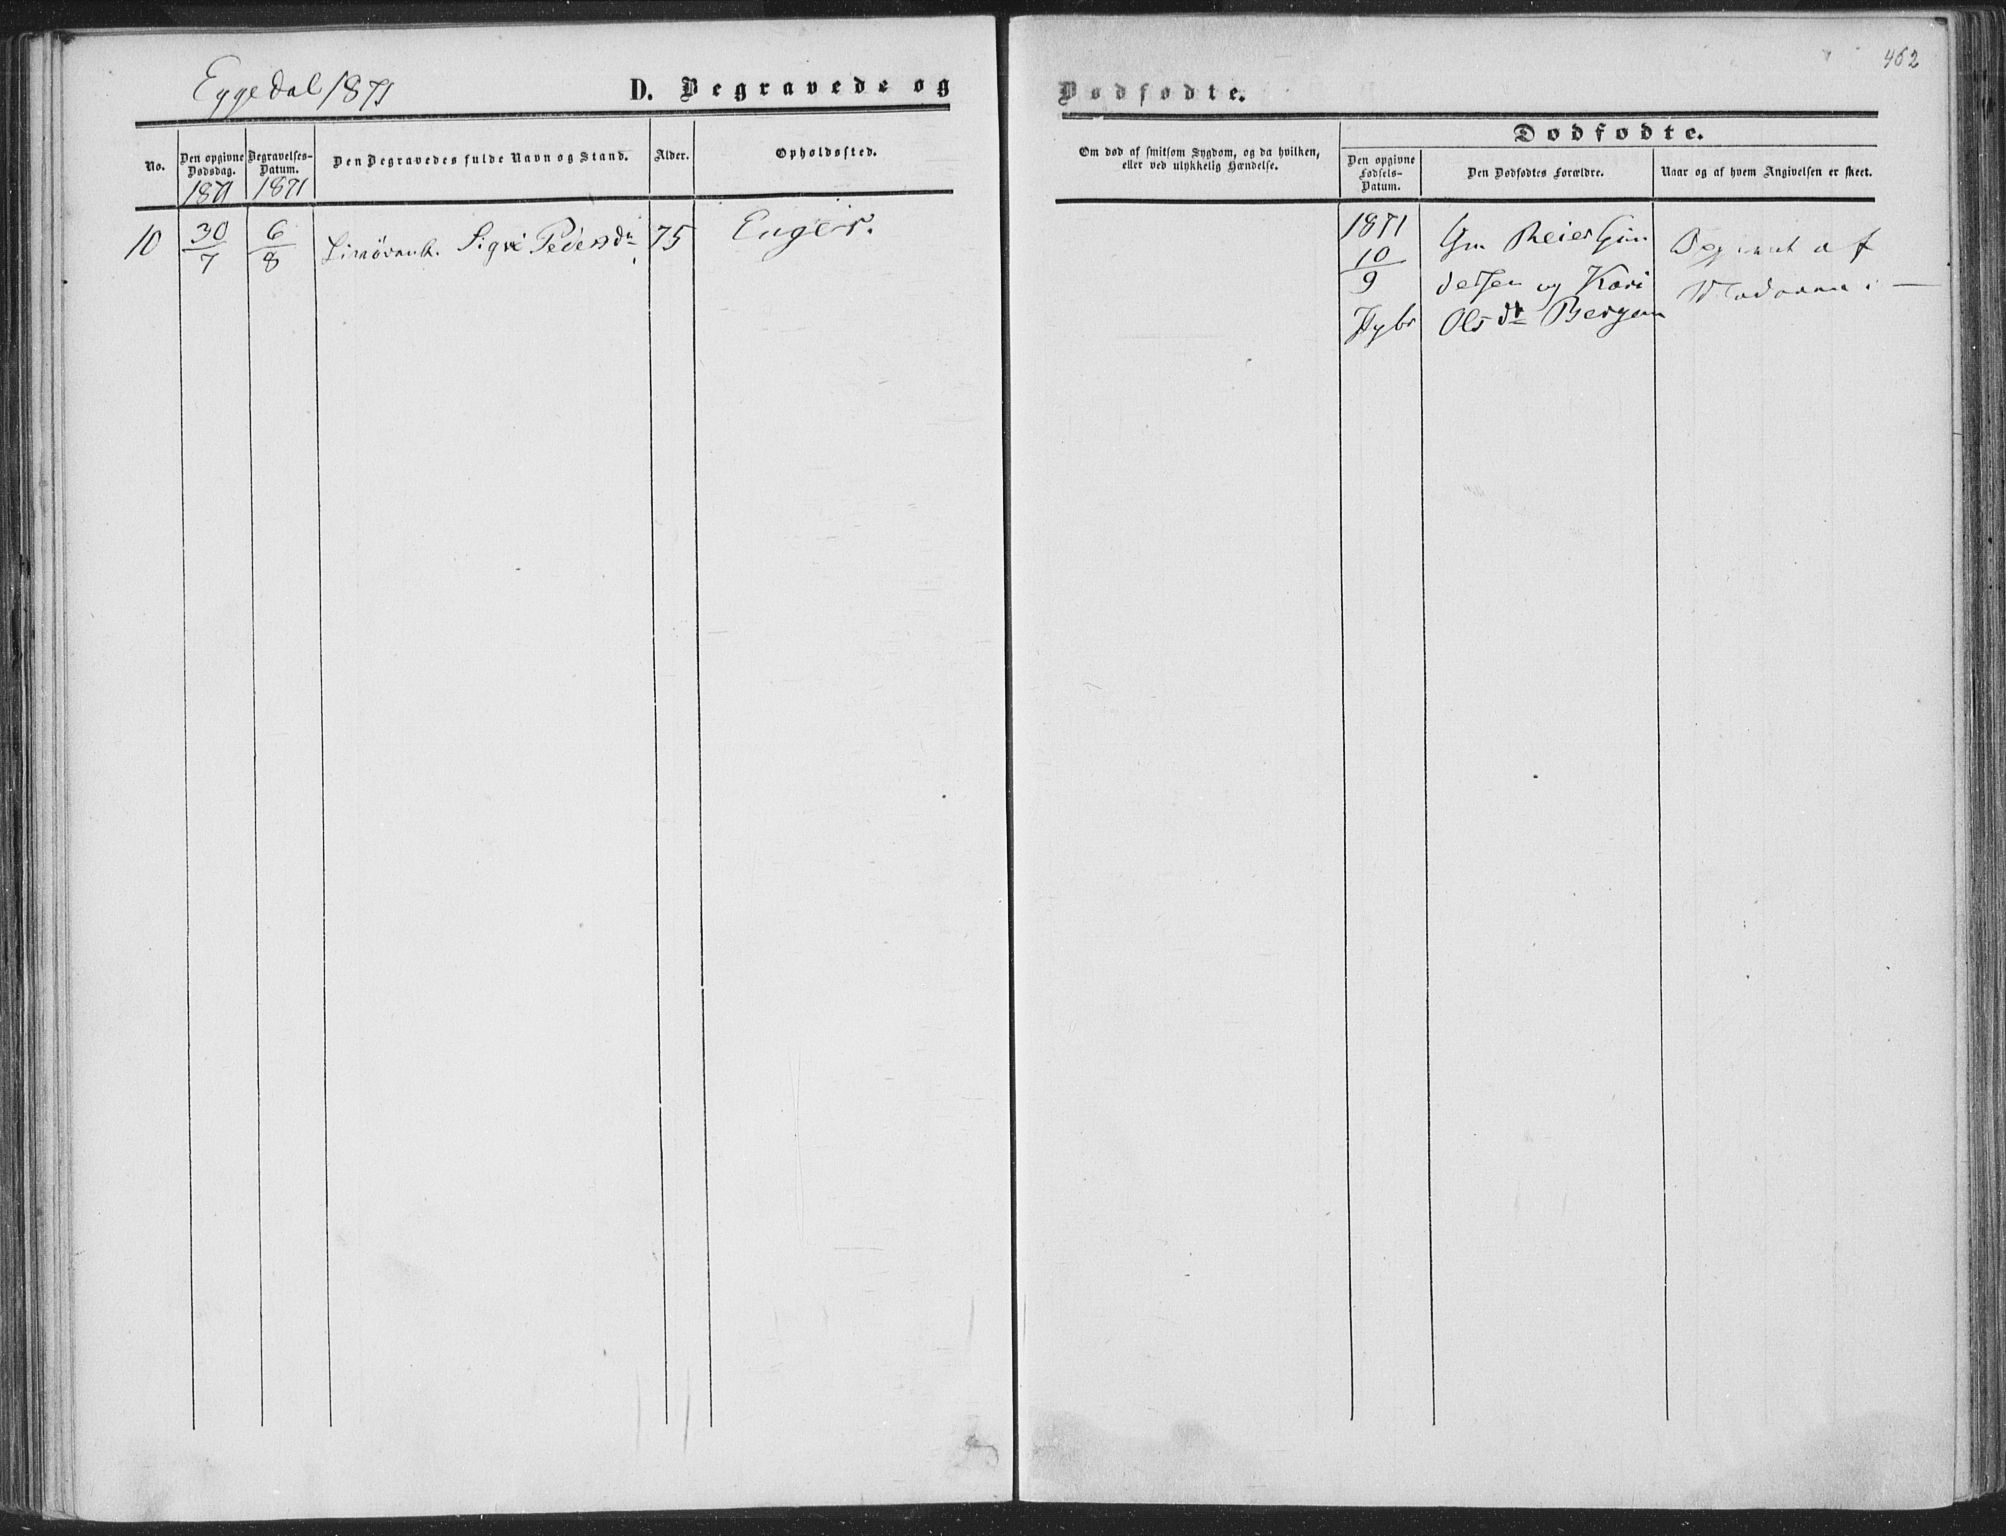 462
Eggedal 1871
D. Begravede og
Dødfødte.
No.
Den opgivne Dødsdag.
1871
Begravelses-Datum.
1871
Den Begravedes fulde Navn og Stand.
Alder.
Opholdssted.
Om død af smitsom Sygdom, og da hvilken,
eller ved ulykkelig Hændelse.
Dødfødte.
Den opgivne
Fødsels-
Datum.
Den Dødfødtes Forældre.
Naar og af hvem Angivelsen er skeet.
10 30/7 6/8 Sigri Pedersdr 75 Enger.
1871
10/9
Gm Reier Gun
dersen og Kari
Olsdr Bergan
af